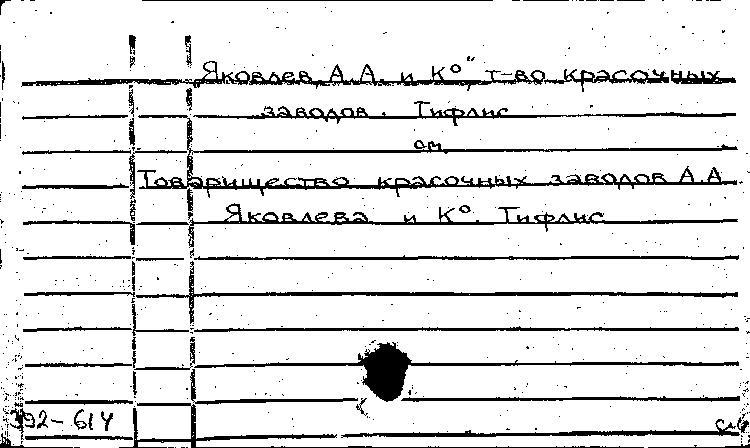 „Яковлев, А.А. и К°", т-во красочных
заводов. Тифлис
см.
Товарищество красочных заводов А.А
Яковлева и К°. Тифлис
392-614